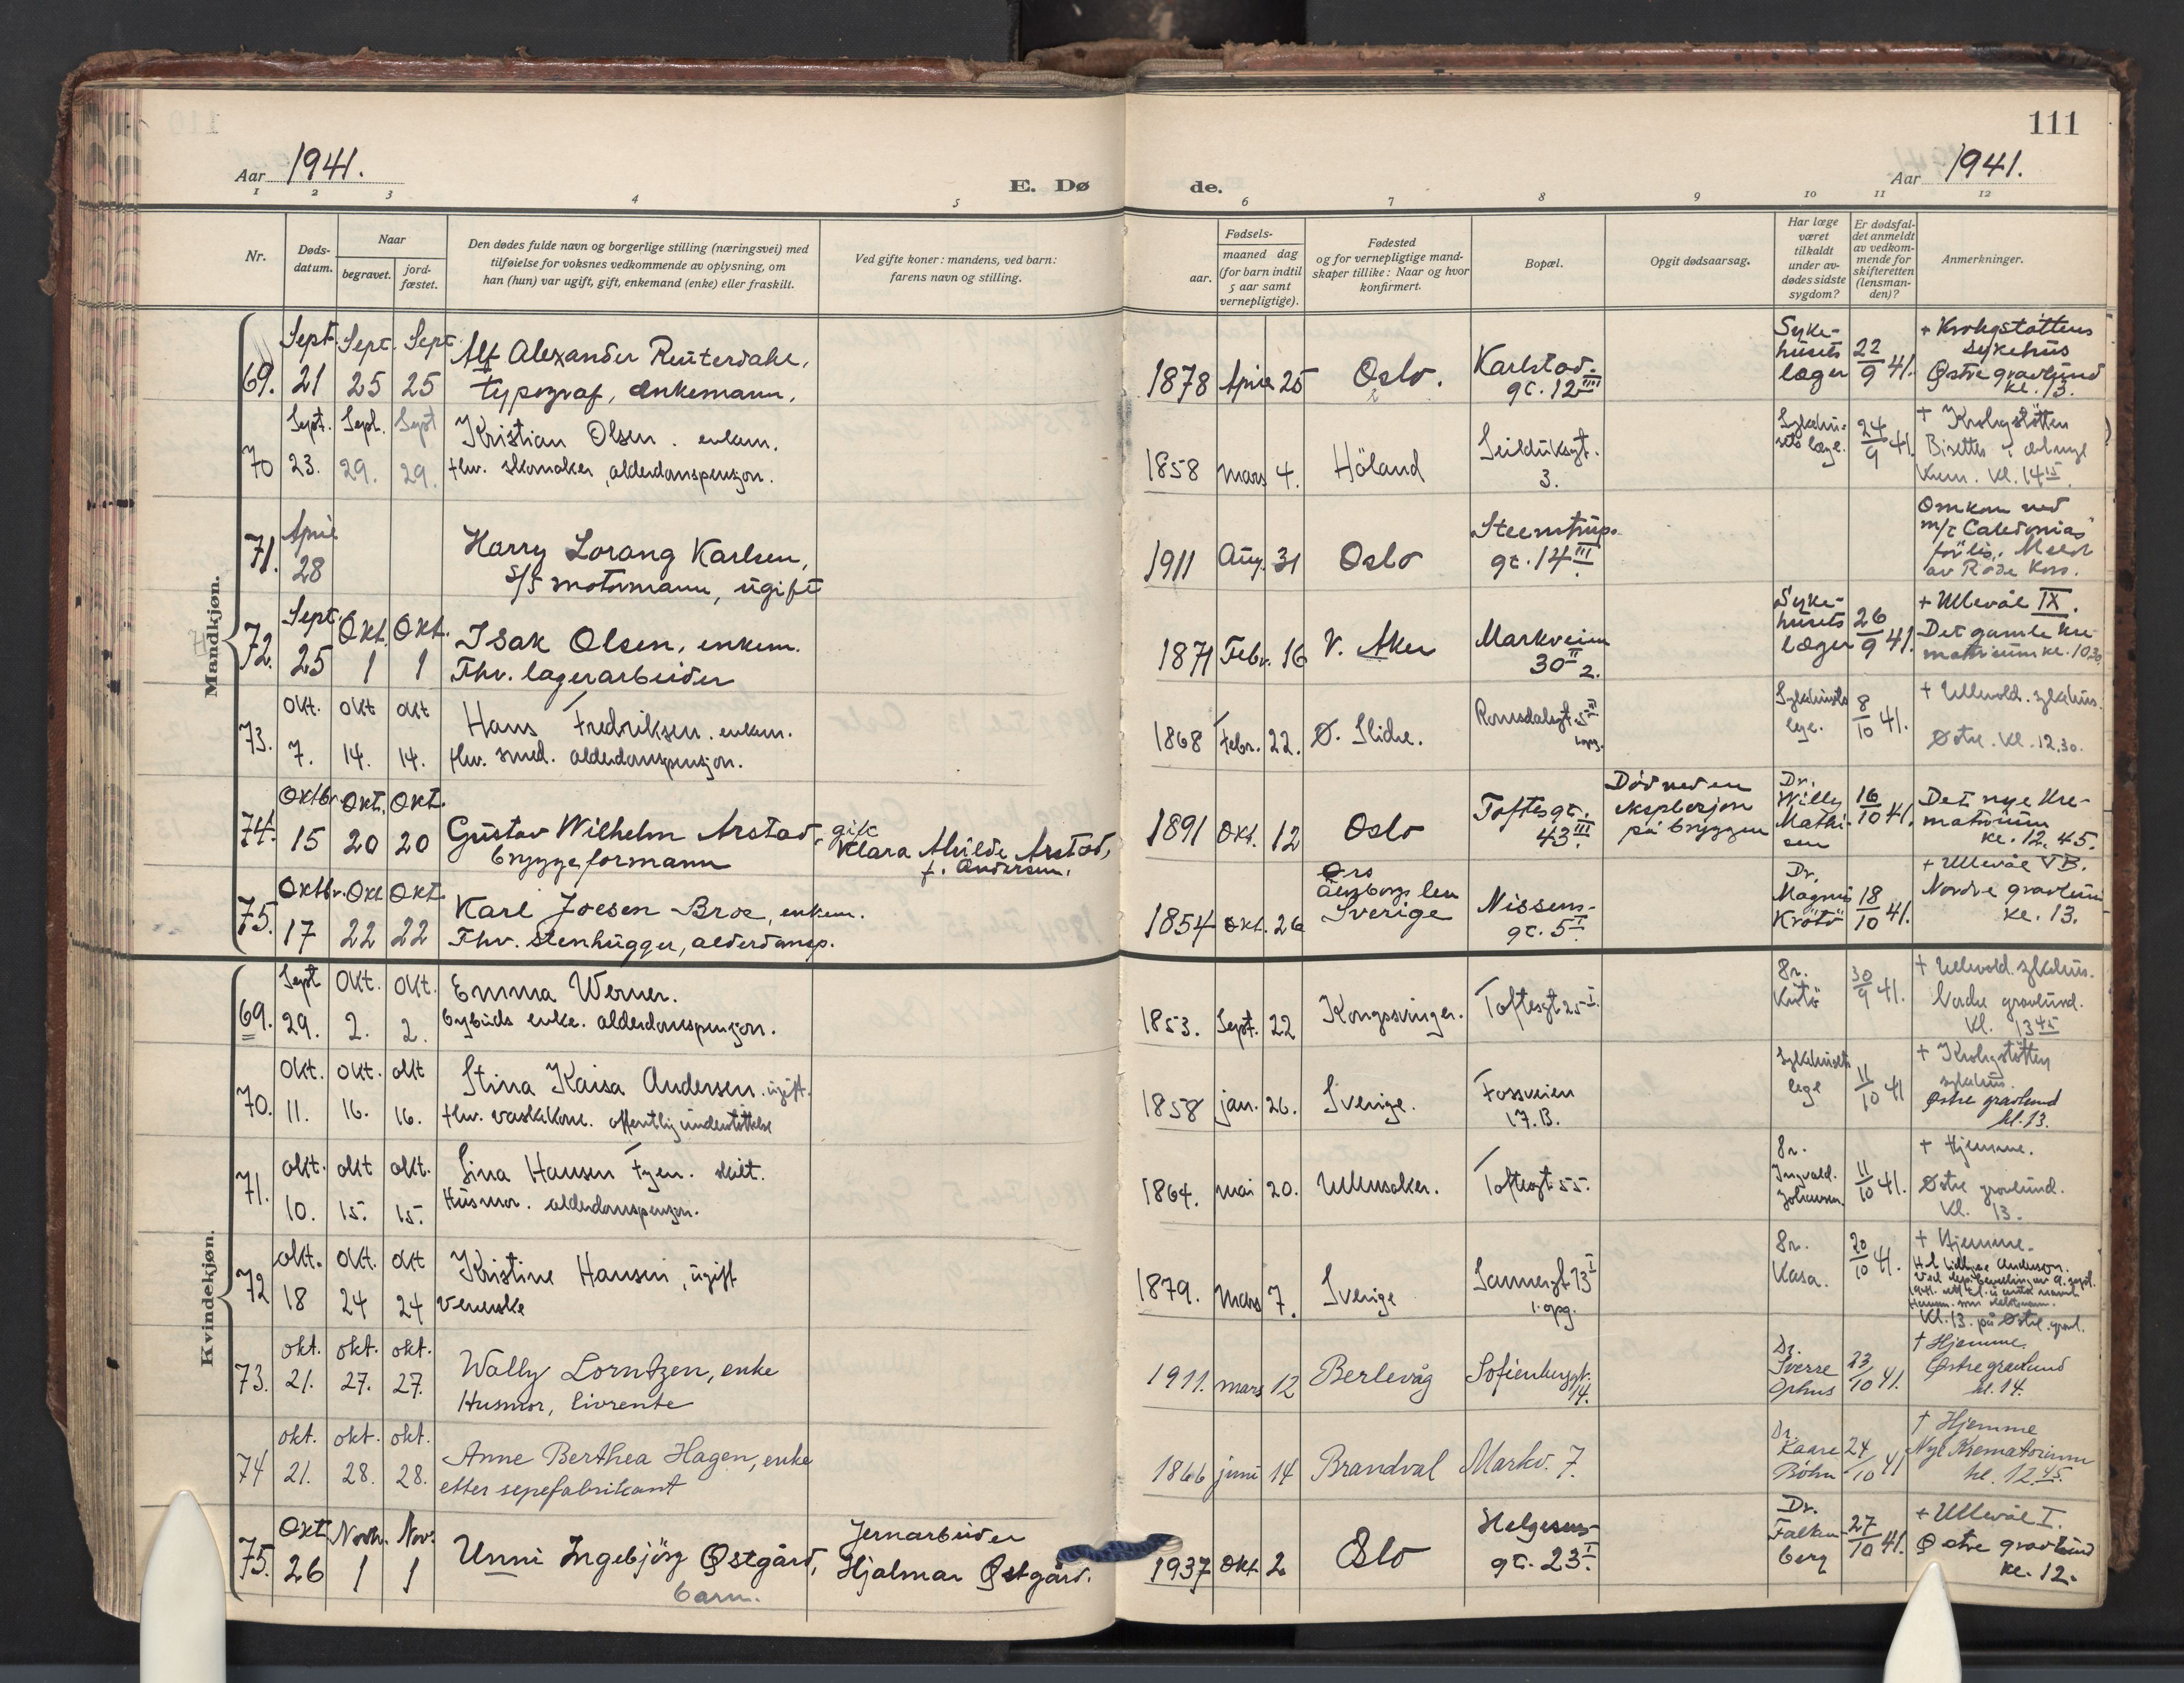 111
Aar 1941.
E. Dø
de.
Aar 1941.
1 2 3 4 5 6 7 8 9 10 11 12
Nr.
Døds-
datum.
Naar
begravet.
jord-
fæstet.
Den dødes fulde navn og borgerlige stilling (næringsvei) med
tilføielse for voksnes vedkommende av oplysning, om
han (hun) var ugift, gift, enkemand (enke) eller fraskilt.
Ved gifte koner: mandens, ved barn:
farens navn og stilling.
Fødsels-
aar.
maaned dag
(for barn indtil
5 aar samt
vernepligtige).
Fødested
og for vernepligtige mand-
skaper tillike: Naar og hvor
konfirmert.
Bopæl.
Opgit dødsaarsag.
Har læge
været
tilkaldt
under av-
dødes sidste
sygdom?
Er dødsfal-
det anmeldt
av vedkom-
mende for
skifteretten
(lensman-
den)?
Anmerkninger.
Mandkjøn.
69.
Sept. 21
Sept. 25
Sept. 25
Alf Alexander Reuterdahl,
typograf, enkemann.
1878 April 25
Oslo.
Karlstad.
gt. 12 IIII
Syke-
husets
læger
22/9 41.
+ Krohgstøttens
sykehus
Østre gravlund
kl. 13.
70
Sept. 23.
Sept. 29.
Sept 29.
Kristian Olsen. enkem.
thv. skomaker, alderdomspensjon.
1858 mars 4.
Höland
Seilduksgt.
3.
24/9 41
+ Krohgstøtten
Krem. kl. 14 15.
71.
April 28
Harry Lorang Karlsen,
motormann, ugift
1911 Aug. 31
Oslo
Steenstrups
gt. 14 III.
Omkom ved
m/t Caledonias
forlis. Meldt
av Røde Kors.
72.
Sept. 25
Okt. 1
Okt. 1
Isak Olsen, enkem.
Thv. lagerarbeider
1871 Febr. 16
V. Aker
Markveien
30 II 2.
Syke-
husets
læger
26/9 41.
+ Ullevål IX.
Det gamle kre-
matorium kl. 10 30
73.
Okt. 7.
Okt 14.
Okt 14.
Hans Fredriksen. enkem.
thv. smed. alderdomspensjon.
1868 Febr. 22.
Ø. Slidre.
Romsdalsgt. 5 III
Sykehusets
lege.
8/10 41.
+ Ullevold. sykehus.
Østre. kl. 12,30.
74.
Oktbr. 15
Okt. 20
Okt. 20
Gustav Wilhelm Arstad,
bryggeformann
gift
Klara Alvilde Arstad,
f. Andersen.
1891 Okt. 12
Oslo
Toftesgt.
43 III.
Död ved en
eksplosjon
på bryggen
Dr.
Willy
Mathi-
sen
16/10 41.
Det nye kre-
matorium
kl. 12.45.
75.
Oktbr. 17
Okt 22
Okt. 22
Karl Joesen Broe, enkem.
Thv. stenhugger, alderdomsp.
1854 Okt. 26
Ors
Älvsborgs len
Sverige
Nissens-
gt. 5 I.
Dr.
Magnus
18/10 41.
+ Ullevål VB.
Nordre gravlund
kl. 13.
Kvindekjøn.
69.
Sept 29.
Okt. 2.
Okt. 2.
Emma Werner.
bybuds enke. alderdomspensjon.
1853. Sept. 22
Kongsvinger.
Toftesgt 25 I.
30/9 41.
+ Ullevold. sykehus.
Nordre gravlund.
kl. 13 45
70.
Okt. 11.
Okt. 16.
Okt 16.
Stina Kaisa Andersen. ugift.
thv. vaskekone. offentlig understöttelse
1858 jan. 26.
Sverige.
Fossveien
17.B.
Sykehusets
lege
11/10 41
+ Krohgstøtten
sykehus.
Østre gravlund
kl. 13.
71.
Okt. 10.
Okt 15.
Okt. 15.
Lina Hansen Fyen. skilt.
Husmor. alderdomspensjon.
1864. mai 20.
Ullensaker.
Toftesgt 55.
Dr.
Ingvald.
Johansen
11/10 41.
+ Hjemme.
Østre gravlund.
kl. 13.
72
Okt. 18
Okt. 24
Okt 24
Kristine Hansen, ugift
Veverske
1879. mars 7.
Sverige
Sannergt 13 I
1. opg.
Dr.
Kasa.
20/10 41.
+ Hjemme.
Kl. 13. på Østre. gravl.
73.
Okt. 21.
okt. 27.
okt. 27.
Wally Lorntzen, enke
Husmor, livrente
1911. mars 12
Berlevåg
Sofienberggt.
14.
Dr.
Sverre
Ophus
23/10 41.
† Hjemme.
Østre gravlund
kl. 14.
74
okt. 21.
okt. 28.
okt. 28.
Anne Berthea Hagen, enke
etter sepefabrikant
1866 juni 14
Brandval
Markv. 7.
Dr.
Kaare
Böhn
24/10 41
† Hjemme
Nye Krematorium
kl. 12 45.
75.
Okt 26
Novbr. 1
Nov. 1
Unni Ingebjörg Østgård,
barn.
Jernarbeider
Hjalmar Østgård.
1937 Okt 2
Oslo
Helgesens-
gt. 23 I.
Dr.
Falken-
berg
27/10 41.
+ Ullevål I.
Østre gravlund
kl. 12.